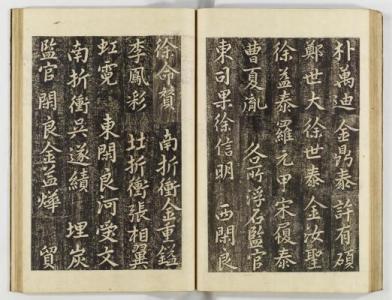 朴萬迪 金鼎泰 許有碩
鄭世大 徐世泰 金汝聖
徐益泰 羅元甲 宋復泰
曹夏胤 各所浮石監官
東司果徐信明 西閑良
徐命賛 南折衝金重鎰
李鳳彩 北折衝張相翼
虹霓 東閑良河受文
南折衝吳遂績 埋炭
監官閑良金益燁 貿